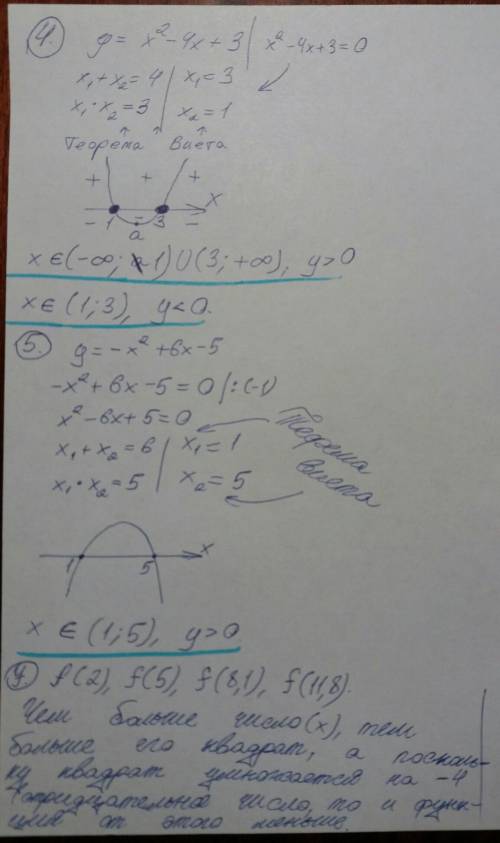 4. y = x² - 4x + 3 | x² - 4x + 3 = 0
x₁ + x₂ = 4 | x₁ = 3
x₁ · x₂ = 3 | x₂ = 1
Теорема Виета
+ + + x
- 1 - 3 -
a
x ∈ (-∞; 1) ∪ (3; +∞), y > 0
x ∈ (1; 3), y < 0.
5. y = -x² + 6x - 5
-x² + 6x - 5 = 0 | : (-1)
x² - 6x + 5 = 0
x₁ + x₂ = 6 | x₁ = 1
x₁ · x₂ = 5 | x₂ = 5
Теорема
Виета
x
1 5
x ∈ (1; 5), y > 0
f(2), f(5), f(8,1), f(11,8).
Чем больше число (x), тем
больше его квадрат, а посколь-
ку квадрат умножается на -4
(отридцательное число, то и функ-
ция от этого меньше.